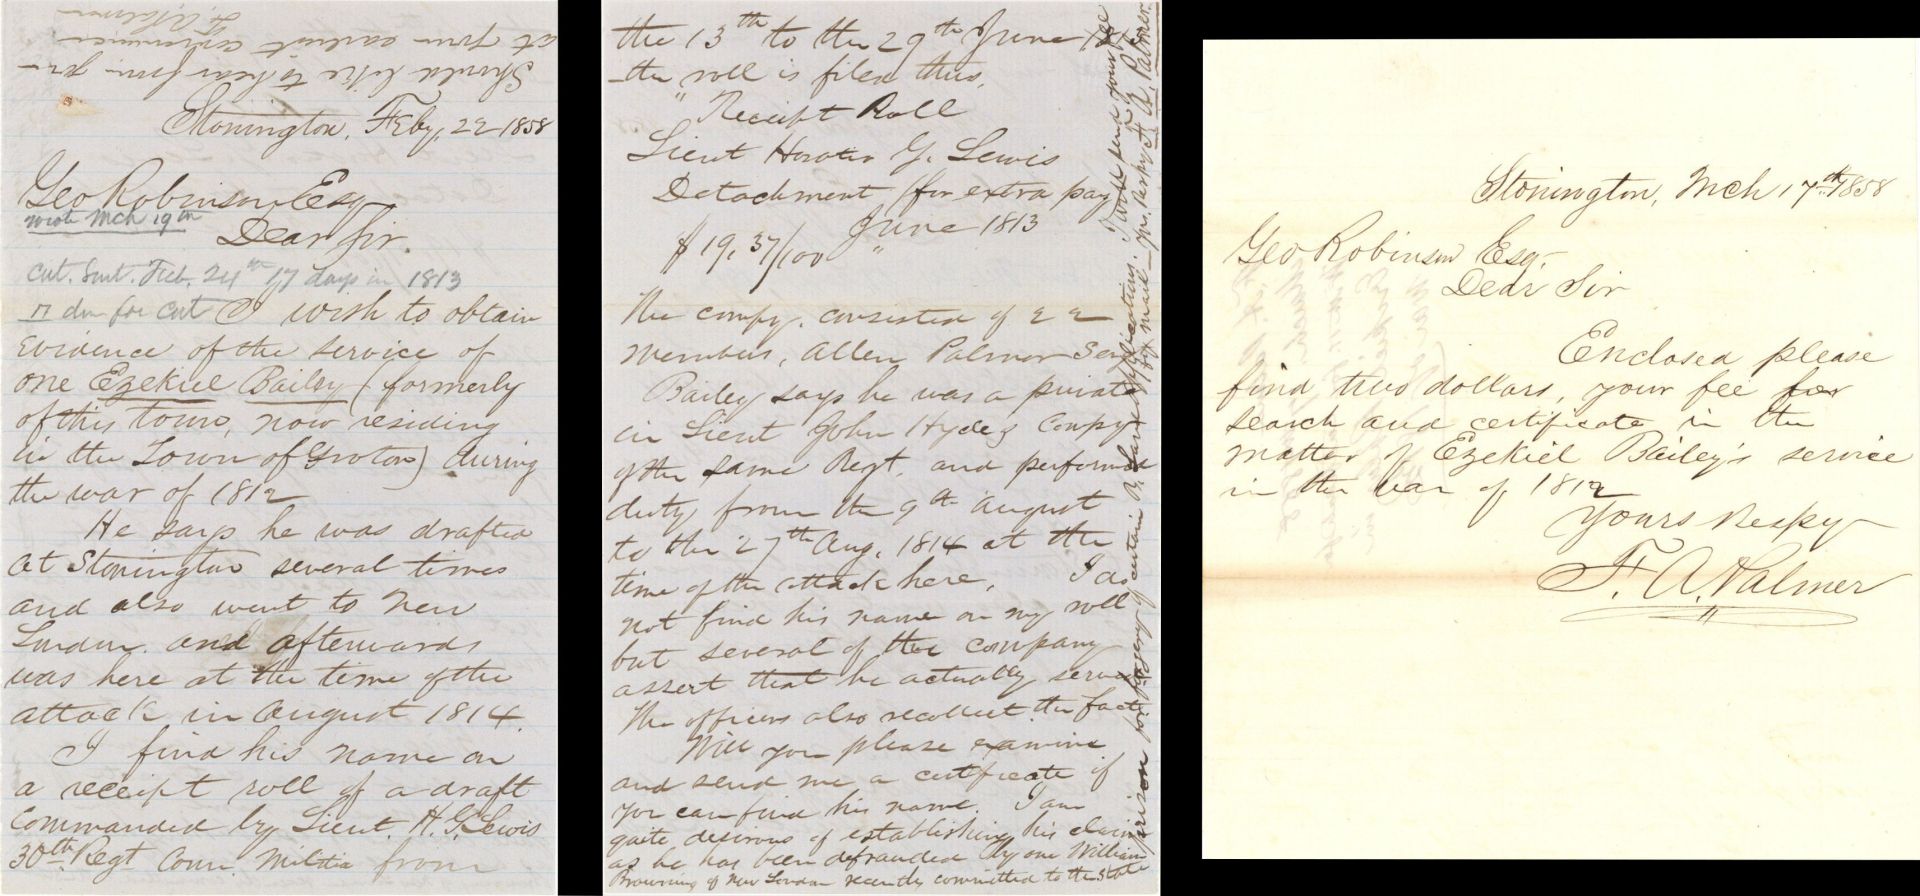 Stonington, Feby, 22 1858
Geo Robinson Esq
wrote Mch 19th
Dear Sir.
Cert. Sent. Feb. 24th 17 days in 1813
for Cert I wish to obtain
evidence of the service of
one Ezekiel Bailey (formerly
of this town, now residing
in the Town of Groton) during
the war of 1812
He says he was drafted
at Stonington several times
and also went to New
London and afterwards
was here at the time of the
attack in August 1814.
I find his name on
a receipt roll of a draft
commanded by Lieut. H. G. Lewis
30th Regt Conn. Militia from
Should like to hear from you
at your earliest convenience
F. A. Palmer
the 13th to the 29th June
the roll is filed thus.
"Receipt Roll
Lieut Horatio G. Lewis
Detachment (for extra pay
June 1813
$19,37/100 "
The compy. consisted of 22
members, Allen Palmer
Bailey says he was a private
in Lieut John Hydes Compy
of the same Regt. and performed
duty from the 9th August
to the 27th Aug. 1814 at the
time of the attack here. I do
not find his name on my roll
but several of the company
assert that he actually served
The officers also recollect the fact
Will you please examine
and send me a certificate if
you can find his name. I am
quite desirous of establishing his claim
as he has been defrauded by one William
Browning of New London recently committed to the State
prison for forgery of certain B. Land applications. I will send your fee
by mail— Yrs. Respy F. A. Palmer.
Stonington, Mch 17th 1858
Geo Robinson Esq.
Dear Sir
Enclosed please
find two dollars, your fee for
search and certificate in the
matter of Ezekiel Bailey's service
in the war of 1812
Yours Respy
F. A. Palmer